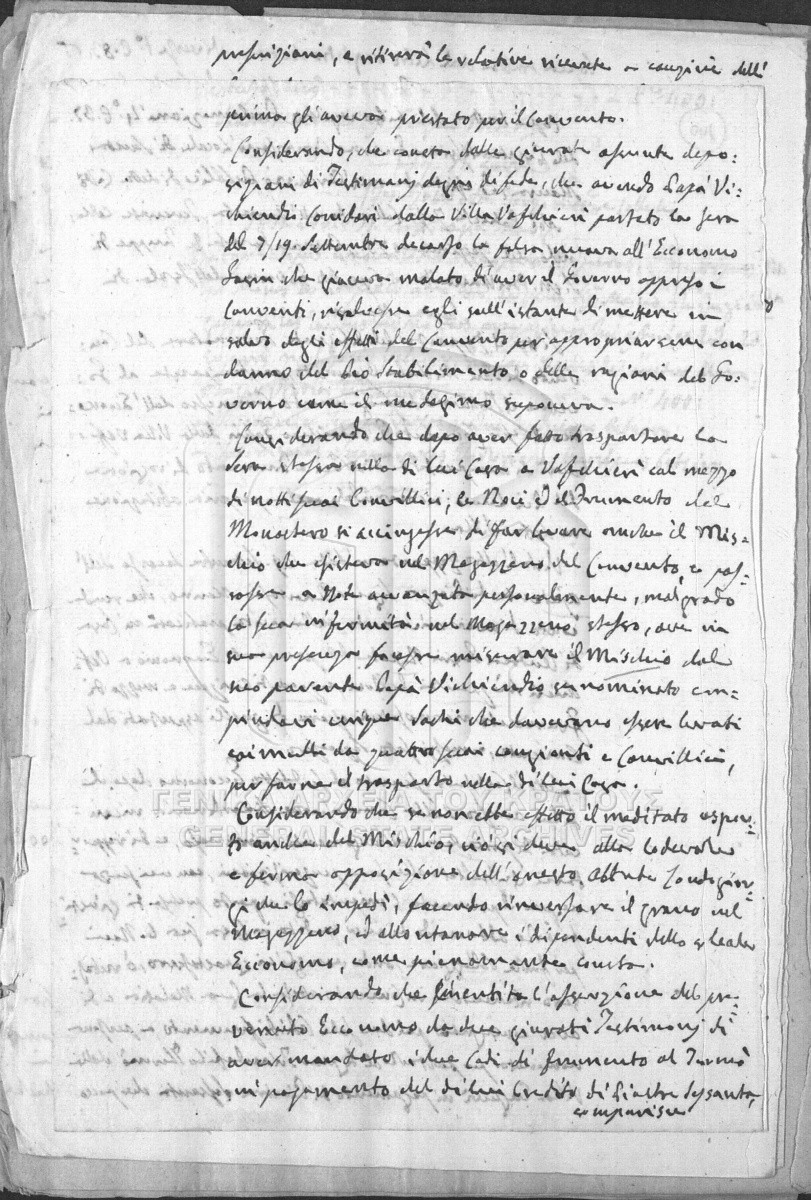 prescrizioni, e ritirerà le relative ricevute a cauzione dell'
prima gli aveva prestato per il Convento.
Considerando, che consta dalle giurate assunte depo:
sizioni di Testimonj degni di fede, che avendo Papà Vi:
chiendio Condari dalla Villa Vafchieri portato la sera
del 7/19 Settembre decorso la falsa nuova all'Economo
che giaceva malato di aver il Governo appreso i
Conventi, risolvesse egli sull'istante di mettere in
salvo degli effetti del Convento per appropriarsene con
danno del Pio Stabilimento o delle ragioni del Go:
verno come il medesimo supponeva.
Considerando che dopo aver fatto trasportare la
sera stessa nella di lui Casa a Vafchieri col mezzo
di notti suoi Convillici, le Noci ed il Frumento del
Monastero si accingesse di far levare anche il Mis:
chio che esisteva nel Magazzeno del Convento e pas:
sasse a notte avanzata personalmente, malgrado
la sua infermità, nel Magazzeno stesso, ove in
sua presenza facesse misurare il Mischio dal
suo parente Papà Vichiendio sunnominato em:
piendovi cinque Sachi che dovevano essere levati
da quattro suoi congionti e Convillici,
per farne il trasporto nella di lui Casa.
Considerando che se non ebbe effetto il meditato aspor:
to anche del Mischio, ciò si deve alla lodevole
e ferma opposizione dell'onesto Abbate
che lo impedì, facendo riversare il grano nel
Magazzeno, ed allontanare i dipendenti dello sleale
Economo, come pienamente consta.
Considerando che smentita l'asserzione del pre:
venuto Economo da due giurati Testimonj di
aver mandato i due Cadi di frumento al
in pagamento del di lui Credito di Piastre sessanta,
comparisce
ΓΕΝΙΚΑ ΑΡΧΕΙΑ ΤΟΥ ΚΡΑΤΟΥΣ
GENERAL STATE ARCHIVES